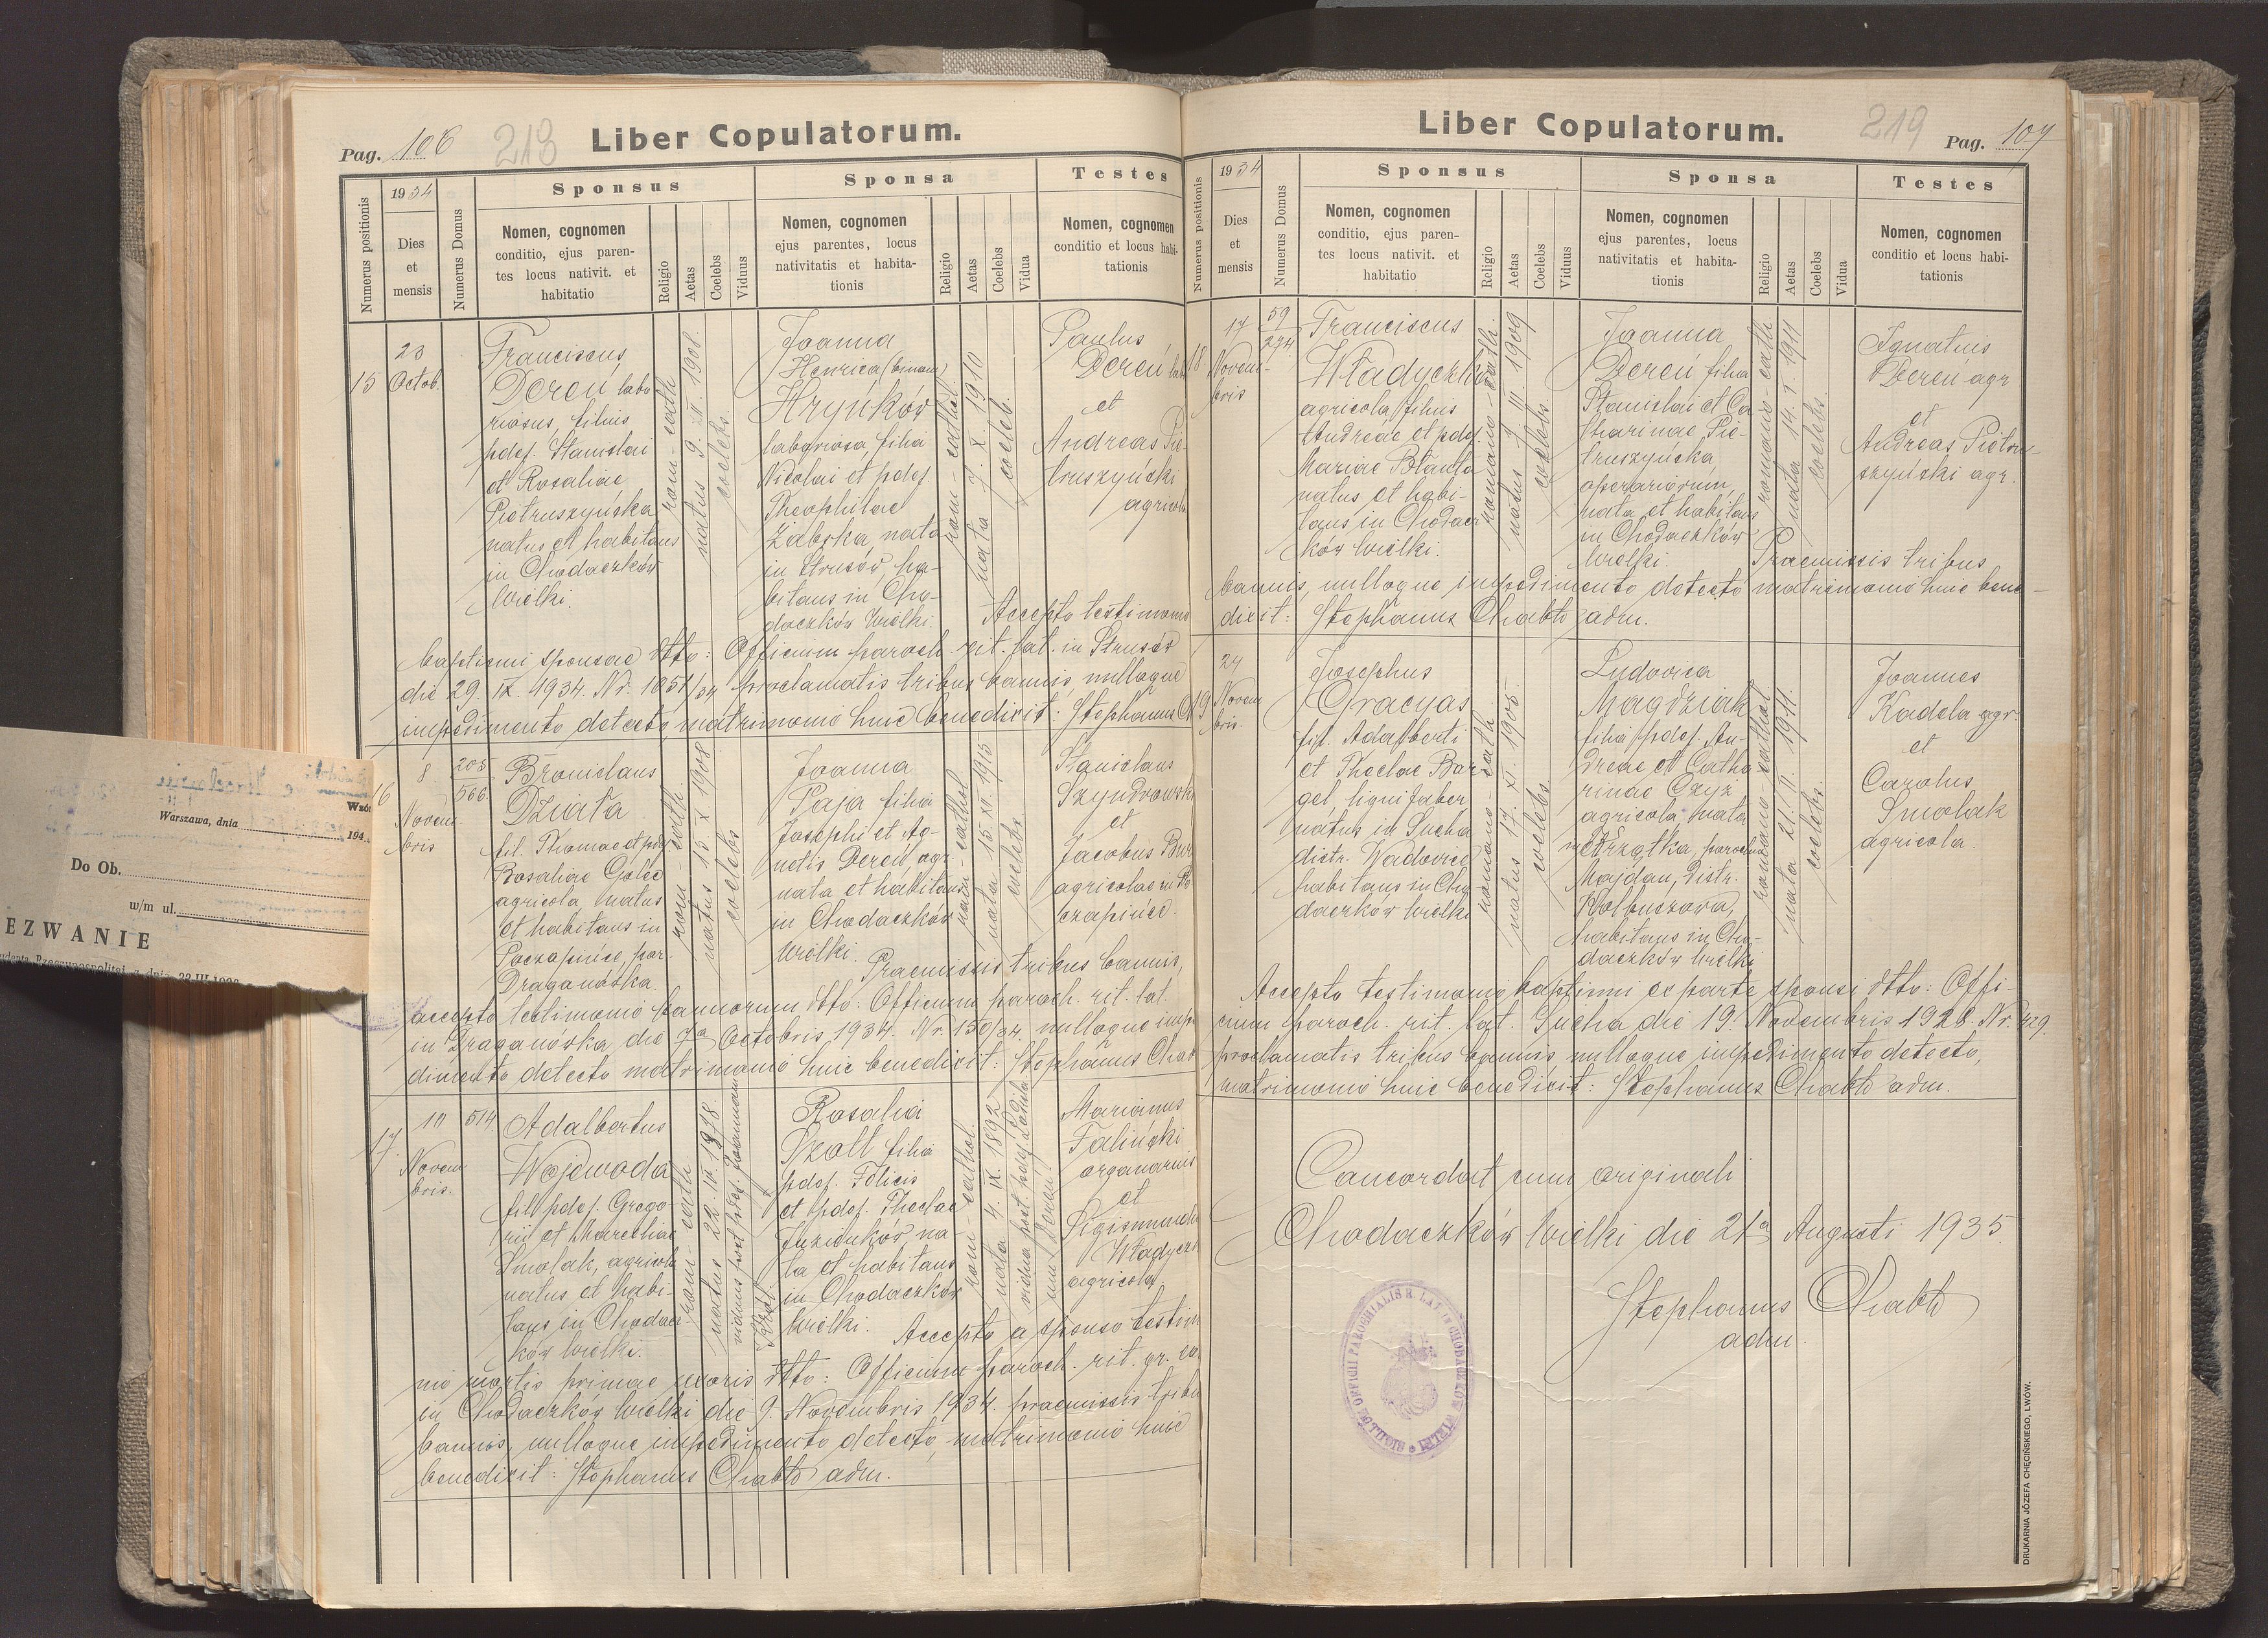 Pag. 106
218
Liber Copulatorum.
Numerus positionis
1934
Dies
et
mensis
Numerus Domus
Sponsus
Nomen, cognomen
conditio, ejus paren-
tes locus nativit. et
habitatio
Religio
Aetas
Coelebs
Viduus
Sponsa
Nomen, cognomen
ejus parentes, locus
nativitatis et habita-
tionis
Religio
Aetas
Coelebs
Vidua
Testes
Nomen, cognomen
conditio et locus habi-
tationis
15
23
Octob.
Franciscus
Dereń labo
riosus, filius
pdef. Stanislai
et Rosaliae
Pietruszyńska
natus et habitans
in Chodaczków
Wielki.
rom-cath
natus 9. II. 1908
coelebs.
Joanna
Henrica (binom)
Hryńków
laboriosa, filia
Nicolai et pdef.
Theophilae
Żabska, nata
in Strusów ha-
bitans in Cho-
daczków Wielki.
rom-cathol.
nata 7. X. 1910
coeleb.
Paulus
Dereń lab
et
Andreas Pie-
truszyński
agricola
Accepto testimonio
baptismi sponsae dtto: Officium paroch. rit. lat. in Strusów
die 29. IX. 1934. Nr. 1051/34 proclamatis tribus bannis, nulloque
impedimento detecto matrimonio huic benedixit: Stephanus Ch
16
8
Novem-
bris
205
566
Bronislaus
Działa
fil. Thomae et pdef
Rosaliae Golec
agricola, natus
et habitans in
Poczapińce, par.
Draganówka.
rom-cath
natus 15. X. 1908
coelebs
Joanna
Paja filia
Josephi et Ag-
netis Dereń, agr.
nata et habitans
in Chodaczków
Wielki.
rom-cathol
nata 15. XI. 1915
coelebs.
Stanislaus
Szyndrowski
et
Jacobus Bur
agricolae in Po
czapińce.
Praemissis tribus bannis,
accepto testimonio bannorum dtto: Officium paroch. rit. lat.
in Draganówka die 7a Octobris 1934. Nr. 150/34. nulloque impe
dimento detecto matrimonio huic benedixit: Stephanus Chab
17.
10
Novem
bris.
514
Adalbertus
Wojewoda
fil. pdef. Grego
rii et Marethae
Smolak, agricola
natus et habi-
tans in Chodacz
ków Wielki.
rom-cath
viduus post pdef. Joannam
Rosalia
Dzoll filia
pdef. Felicis
et pdef. Theclae
Juzidków na-
ta et habitans
in Chodaczków
Wielki.
rom-cathol.
nata 4. IX. 1892
Marianus
Faliński
organarius
et
Sigismundus
Władycz
agricola
Accepto a sponso testim
nio mortis primae uxoris dtto: Officium paroch. rit. gr. ca
in Chodaczków Wielki die 9. Novembris 1934. praemissis tribu
bannis, nulloque impedimento detecto, matrimonio huic
benedixit: Stephanus Chabło adm.
Wzó
Warszawa, dnia 194
Do Ob.
w/m ul.
EZWANIE
Liber Copulatorum.
219
Pag. 107
Numerus positionis
1934
Dies
et
mensis
Numerus Domus
Sponsus
Nomen, cognomen
conditio, ejus paren-
tes locus nativit. et
habitatio
Religio
Aetas
Coelebs
Viduus
Sponsa
Nomen, cognomen
ejus parentes, locus
nativitatis et habita-
tionis
Religio
Aetas
Coelebs
Vidua
Testes
Nomen, cognomen
conditio et locus habi-
tationis
18
17
Novem-
bris
59
294
Franciscus
Władyczko
agricola, filius
Andreae et pdef.
Mariae Błauta
natus et habi-
tans in Chodacz
ków Wielki.
romano-cath.
natus 7. III. 1909
coelebs.
Joanna
Dereń filia
Stanislai et Ca
tharinae Pie-
truszyńska
operariorum,
nata et habitans
in Chodaczków
Wielki.
romano cath
nata 14. I. 1911
coelebs.
Ignatius
Dereń agr
et
Andreas Pietru-
szyński agr.
Praemissis tribus
bannis, nulloque impedimento detecto matrimonio huic bene-
dixit: Stephanus Chabło adm.
19
24
Novem
bris.
Josephus
Gracyas
fil. Adalberti
et Theclae Bar
gel, ligni faber
natus in Sucha
distr. Wadowice
habitans in Cho
daczków Wielki
romano-cath.
natus 17. XI. 1905.
coelebs
Ludovica
Magdziak
filia pdef. An-
dreae et Catha
rinae Czyż
agricola, nata
in Brzątka, parochia
Majdan, distr.
Kolbuszowa,
habitans in Cho-
daczków Wielki
romano-cathol.
nata 21. II. 1911.
coelebs.
Joannes
Kadela agr.
et
Carolus
Smolak
agricola.
Accepto testimonio baptismi ex parte sponsi dtto: Offi-
cium paroch. rit. lat. Sucha die 19. Novembris 1928. Nr. 429.
proclamatis tribus bannis nulloque impedimento detecto,
matrimonio huic benedixit: Stephanus Chabło adm.
Concordat cum originali
Chodaczków Wielki die 21a Augusti 1935
Stephanus Chabło
adm.
SIGILLUM OFFICII PAROCHIALIS R. LAT. IN CHODACZKÓW WIELKI
DRUKARNIA JÓZEFA CHĘCIŃSKIEGO, LWÓW.